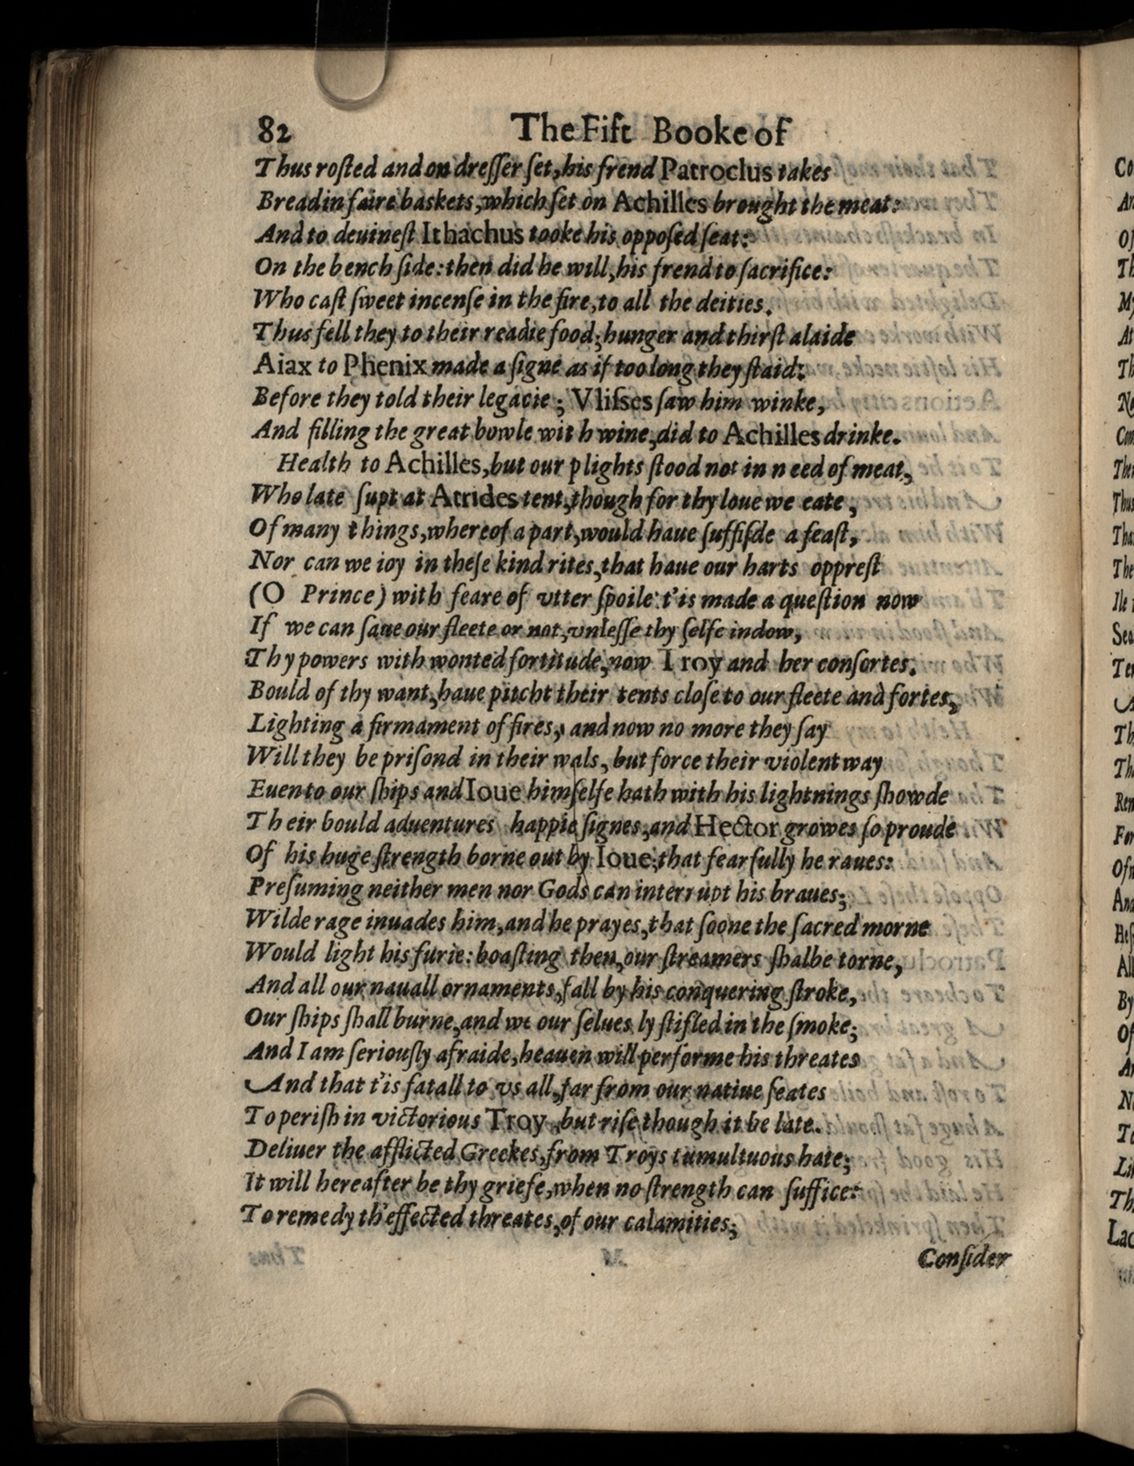 82 The Fift Booke of
Thus rosted and on dresser set, his frend Patroclus takes
Bread in faire baskets, which set on Achilles brought the meat:
And to deuinest Ithachus tooke his opposed seat:
On the bench side: then did he will, his frend to sacrifice:
Who cast sweet incense in the fire, to all the deities.
Thus fell they to their readie food; hunger and thirst alaide
Aiax to Phenix made a signe as if too long they staid:
Before they told their legacie; Vlisses saw him winke,
And filling the great bowle with wine, did to Achilles drinke.
Health to Achilles, but our plights stood not in need of meat,
Who late supt at Atrides tent, though for thy loue we eate,
Of many things, whereof a part, would haue suffisde a feast,
Nor can we ioy in these kind rites, that haue our harts opprest
(O Prince) with feare of vtter spoile: t'is made a question now
If we can saue our fleete or not, vnlesse thy selfe indow,
Thy powers with wonted fortitude, now Troy and her consortes.
Bould of thy want, haue pitcht their tents close to our fleete and fortes,
Lighting a firmament of fires, and now no more they say
Will they be prisond in their wals, but force their violent way
Euen to our ships and Ioue himselfe hath with his lightnings showde
Their bould aduentures happie signes, and Hector growes so proude
Of his huge strength borne out by Ioue; that fearfully he raues:
Presuming neither men nor Gods can interrupt his braues;
Wilde rage inuades him, and he prayes, that soone the sacred morne
Would light his furie: boasting then, our streamers shalbe torne,
And all our nauall ornaments, fall by his conquering stroke,
Our ships shall burne, and we our selues ly stifled in the smoke;
And I am seriously afraide, heauen will performe his threates
And that t'is fatall to vs all, far from our natiue seates
To perish in victorious Troy, but rise though it be late.
Deliuer the afflicted Greekes, from Troys tumultuous hate;
It will hereafter be thy griefe, when no strength can suffice:
To remedy th'effected threates, of our calamities;
Consider